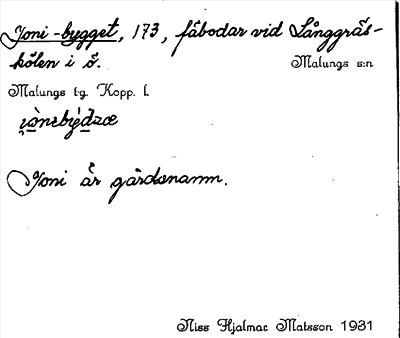 Joni-bygget, 173, fäbodar vid Långgräs-
hölen i ö. Malungs s:n
Malungs tg. Kopp. l.
Joni är gårdsnamn.
Niss Hjalmar Matsson 1931